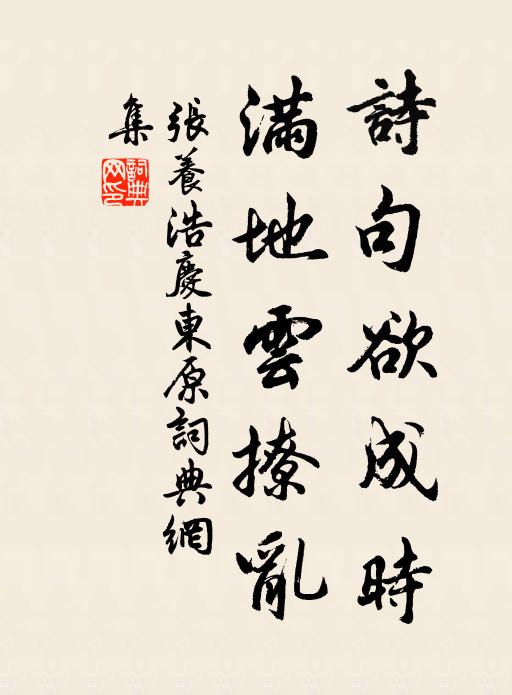 詩句欲成時
滿地雲撩亂
張養浩慶東原詞典網
集
詞典网印